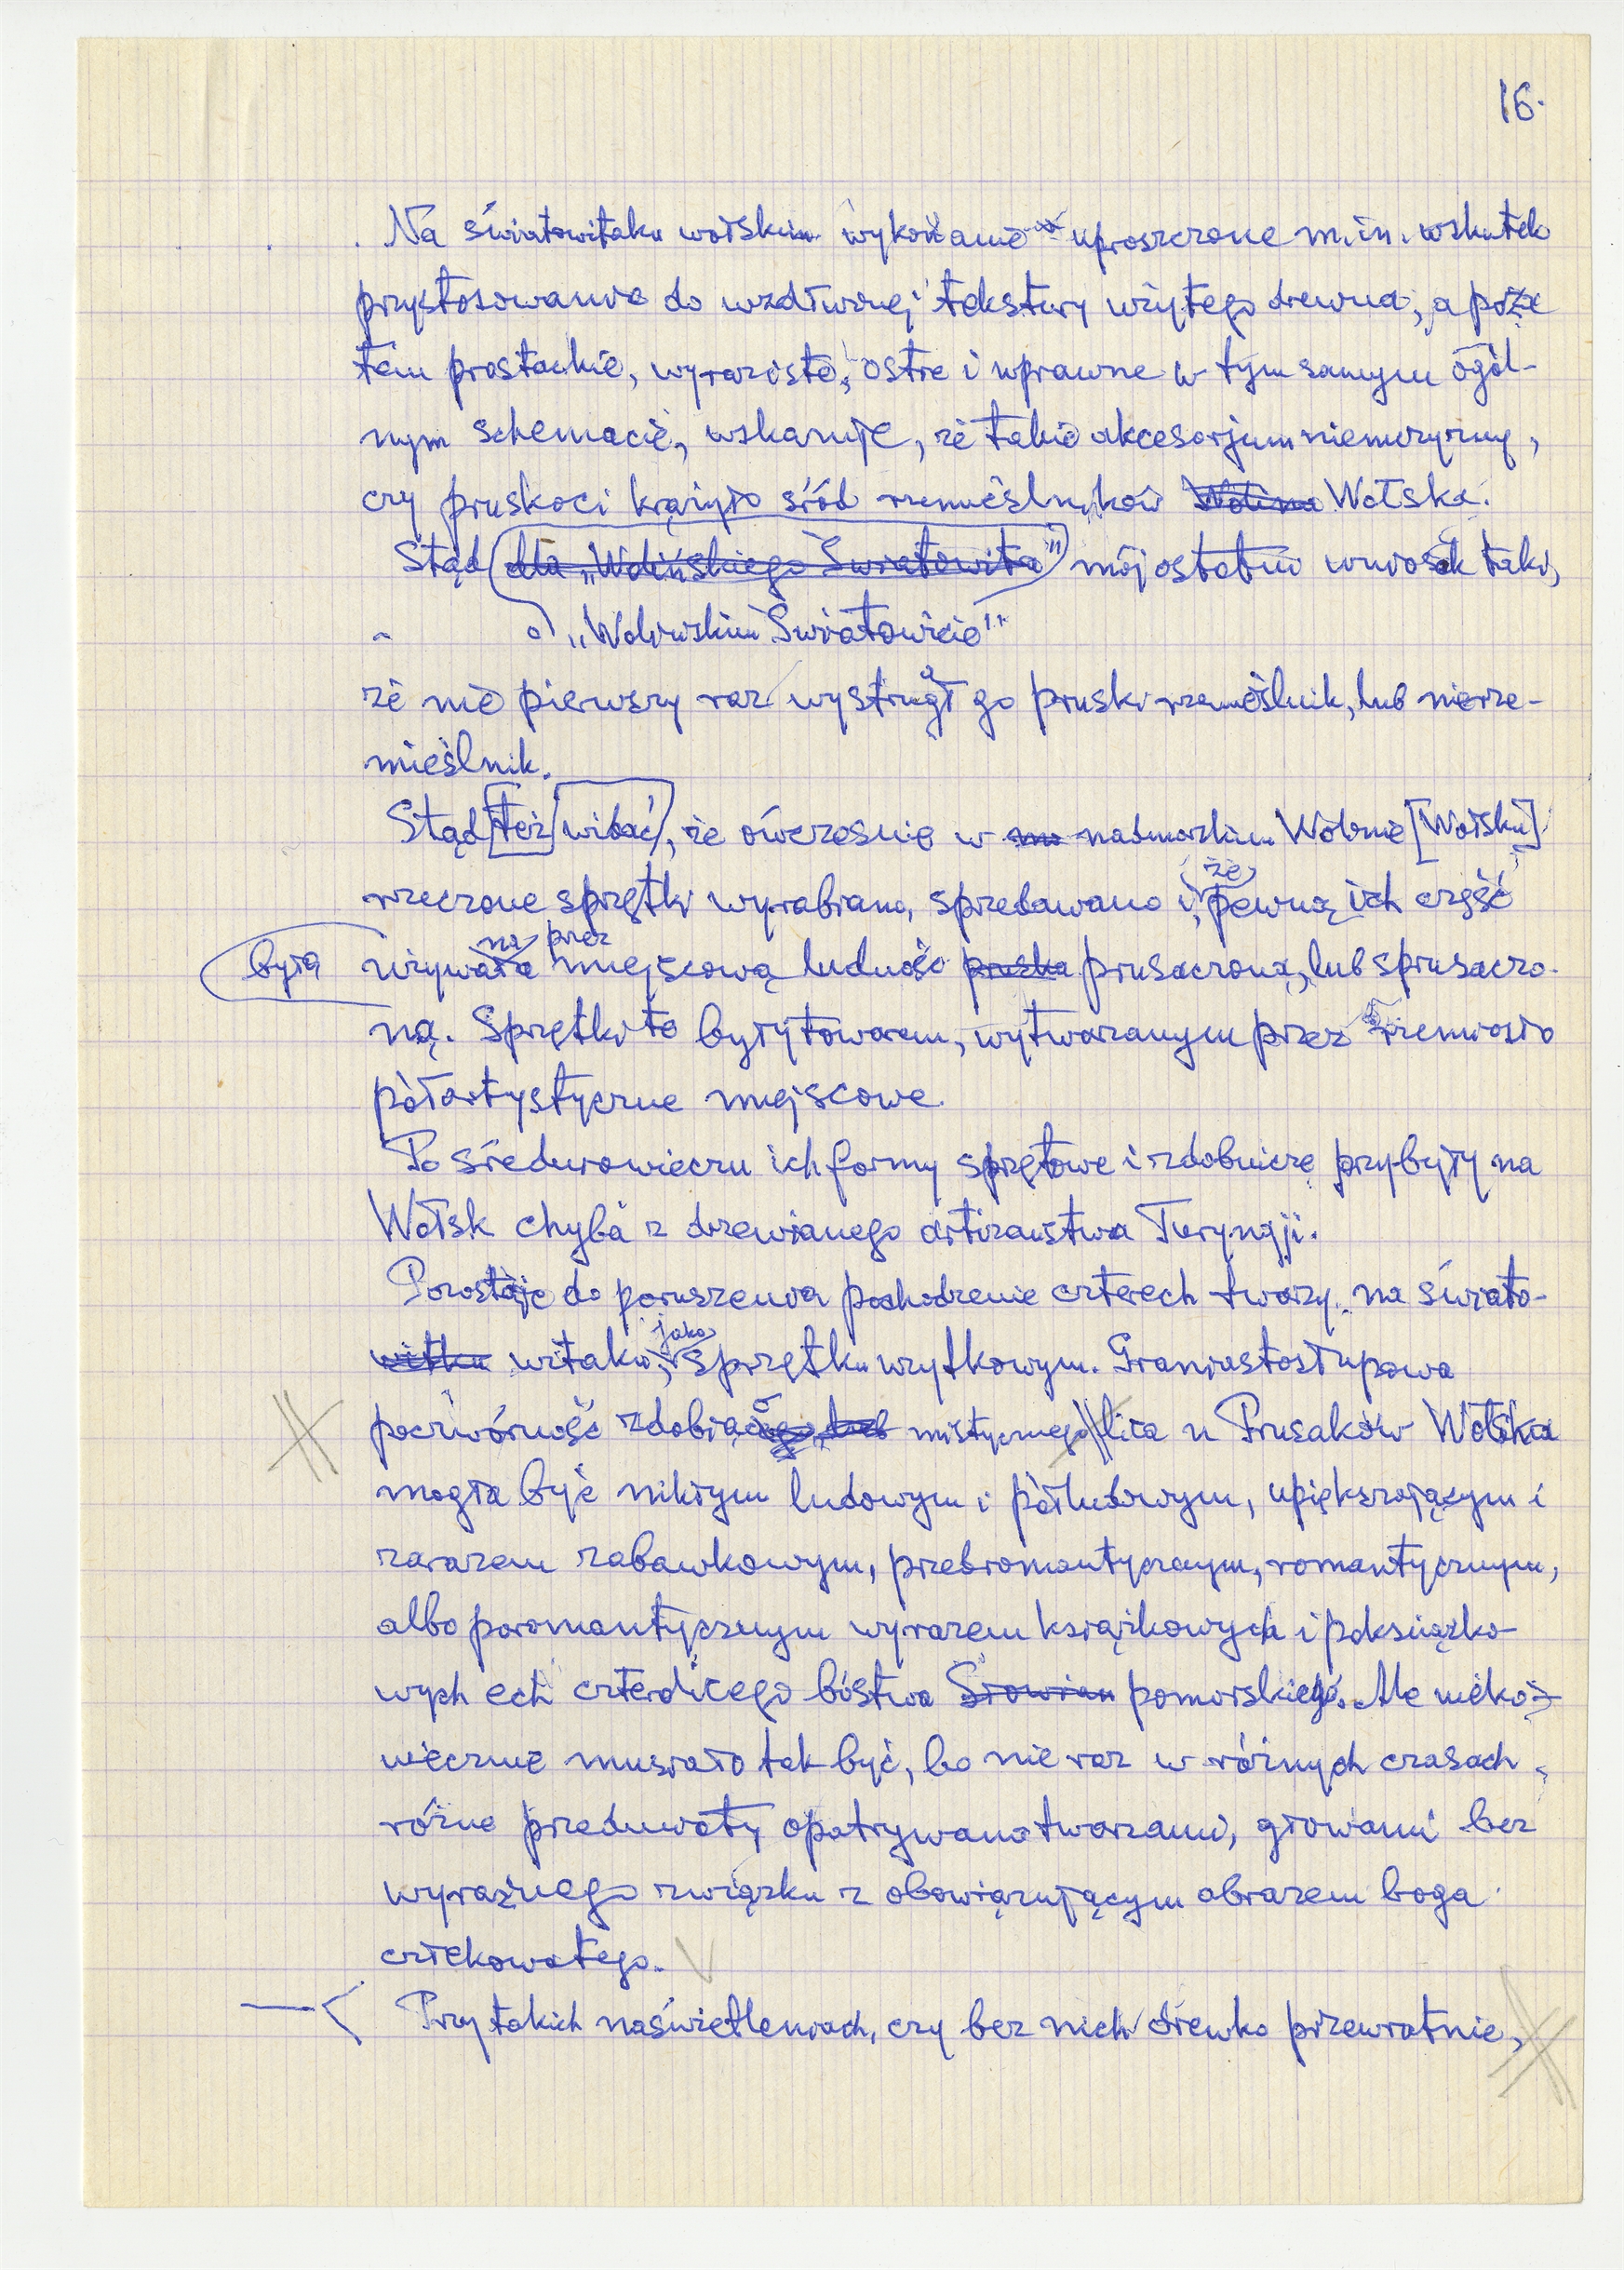 16.
Na światowitaku wołskim wykonanie uproszczone m.in. wskutek
przystosowania do wzdłużnej tekstury użytego drewna, a poza
tem prostackie, wyraziste, ostre i wprawne w tym samym ogól-
nym schemacie, wskazuje, że takie akcesorjum niemczyzny,
czy pruskości krążyło śród rzemieślników Wolina Wołska.
Stąd dla „Wolińskiego Światowita" mój ostatni wniosek taki,
o „Wolińskim Światowicie"
że nie pierwszy raz wystrugał go pruski rzemieślnik, lub nierze-
mieślnik.
Stąd [też] widać, że ówcześnie w nadmorskim Wolinie [Wołsku]
rzeczone sprzętki wyrabiano, sprzedawano i, że pewną ich część
była używana przez miejscową ludność pruska prusaczoną, lub sprusaczo-
ną. Sprzętki to były towarem, wytwarzanym przez rzemiosło
półartystyczne miejscowe.
Po średniowieczu ich formy sprzętowe i zdobnicze przybyły na
Wołsk chyba z drzewianego artizaństwa Turyngji.
Pozostaje do poruszenia pochodzenie czterech twarzy na świato-
witku witaku, jako sprzętku użytkowym. Graniastosłupowa
poczwórność zdobiącego mistycznego lica u Prusaków Wołska
mogła być nikłym ludowym i półludowym, upiększającym i
zarazem zabawkowym, przedromantycznym, romantycznym,
albo poromantycznym wyrazem książkowych i poksiążko-
wych ech czterolicego bóstwa Słowian pomorskiego. Ale nieko-
niecznie musiało tak być, bo nie raz w różnych czasach
różne przedmioty opatrywano twarzami, głowami bez
wyraźnego związku z obowiązującym obrazem boga
człekowatego.
Przy takich naświetleniach, czy bez nich drewko przewrotnie,